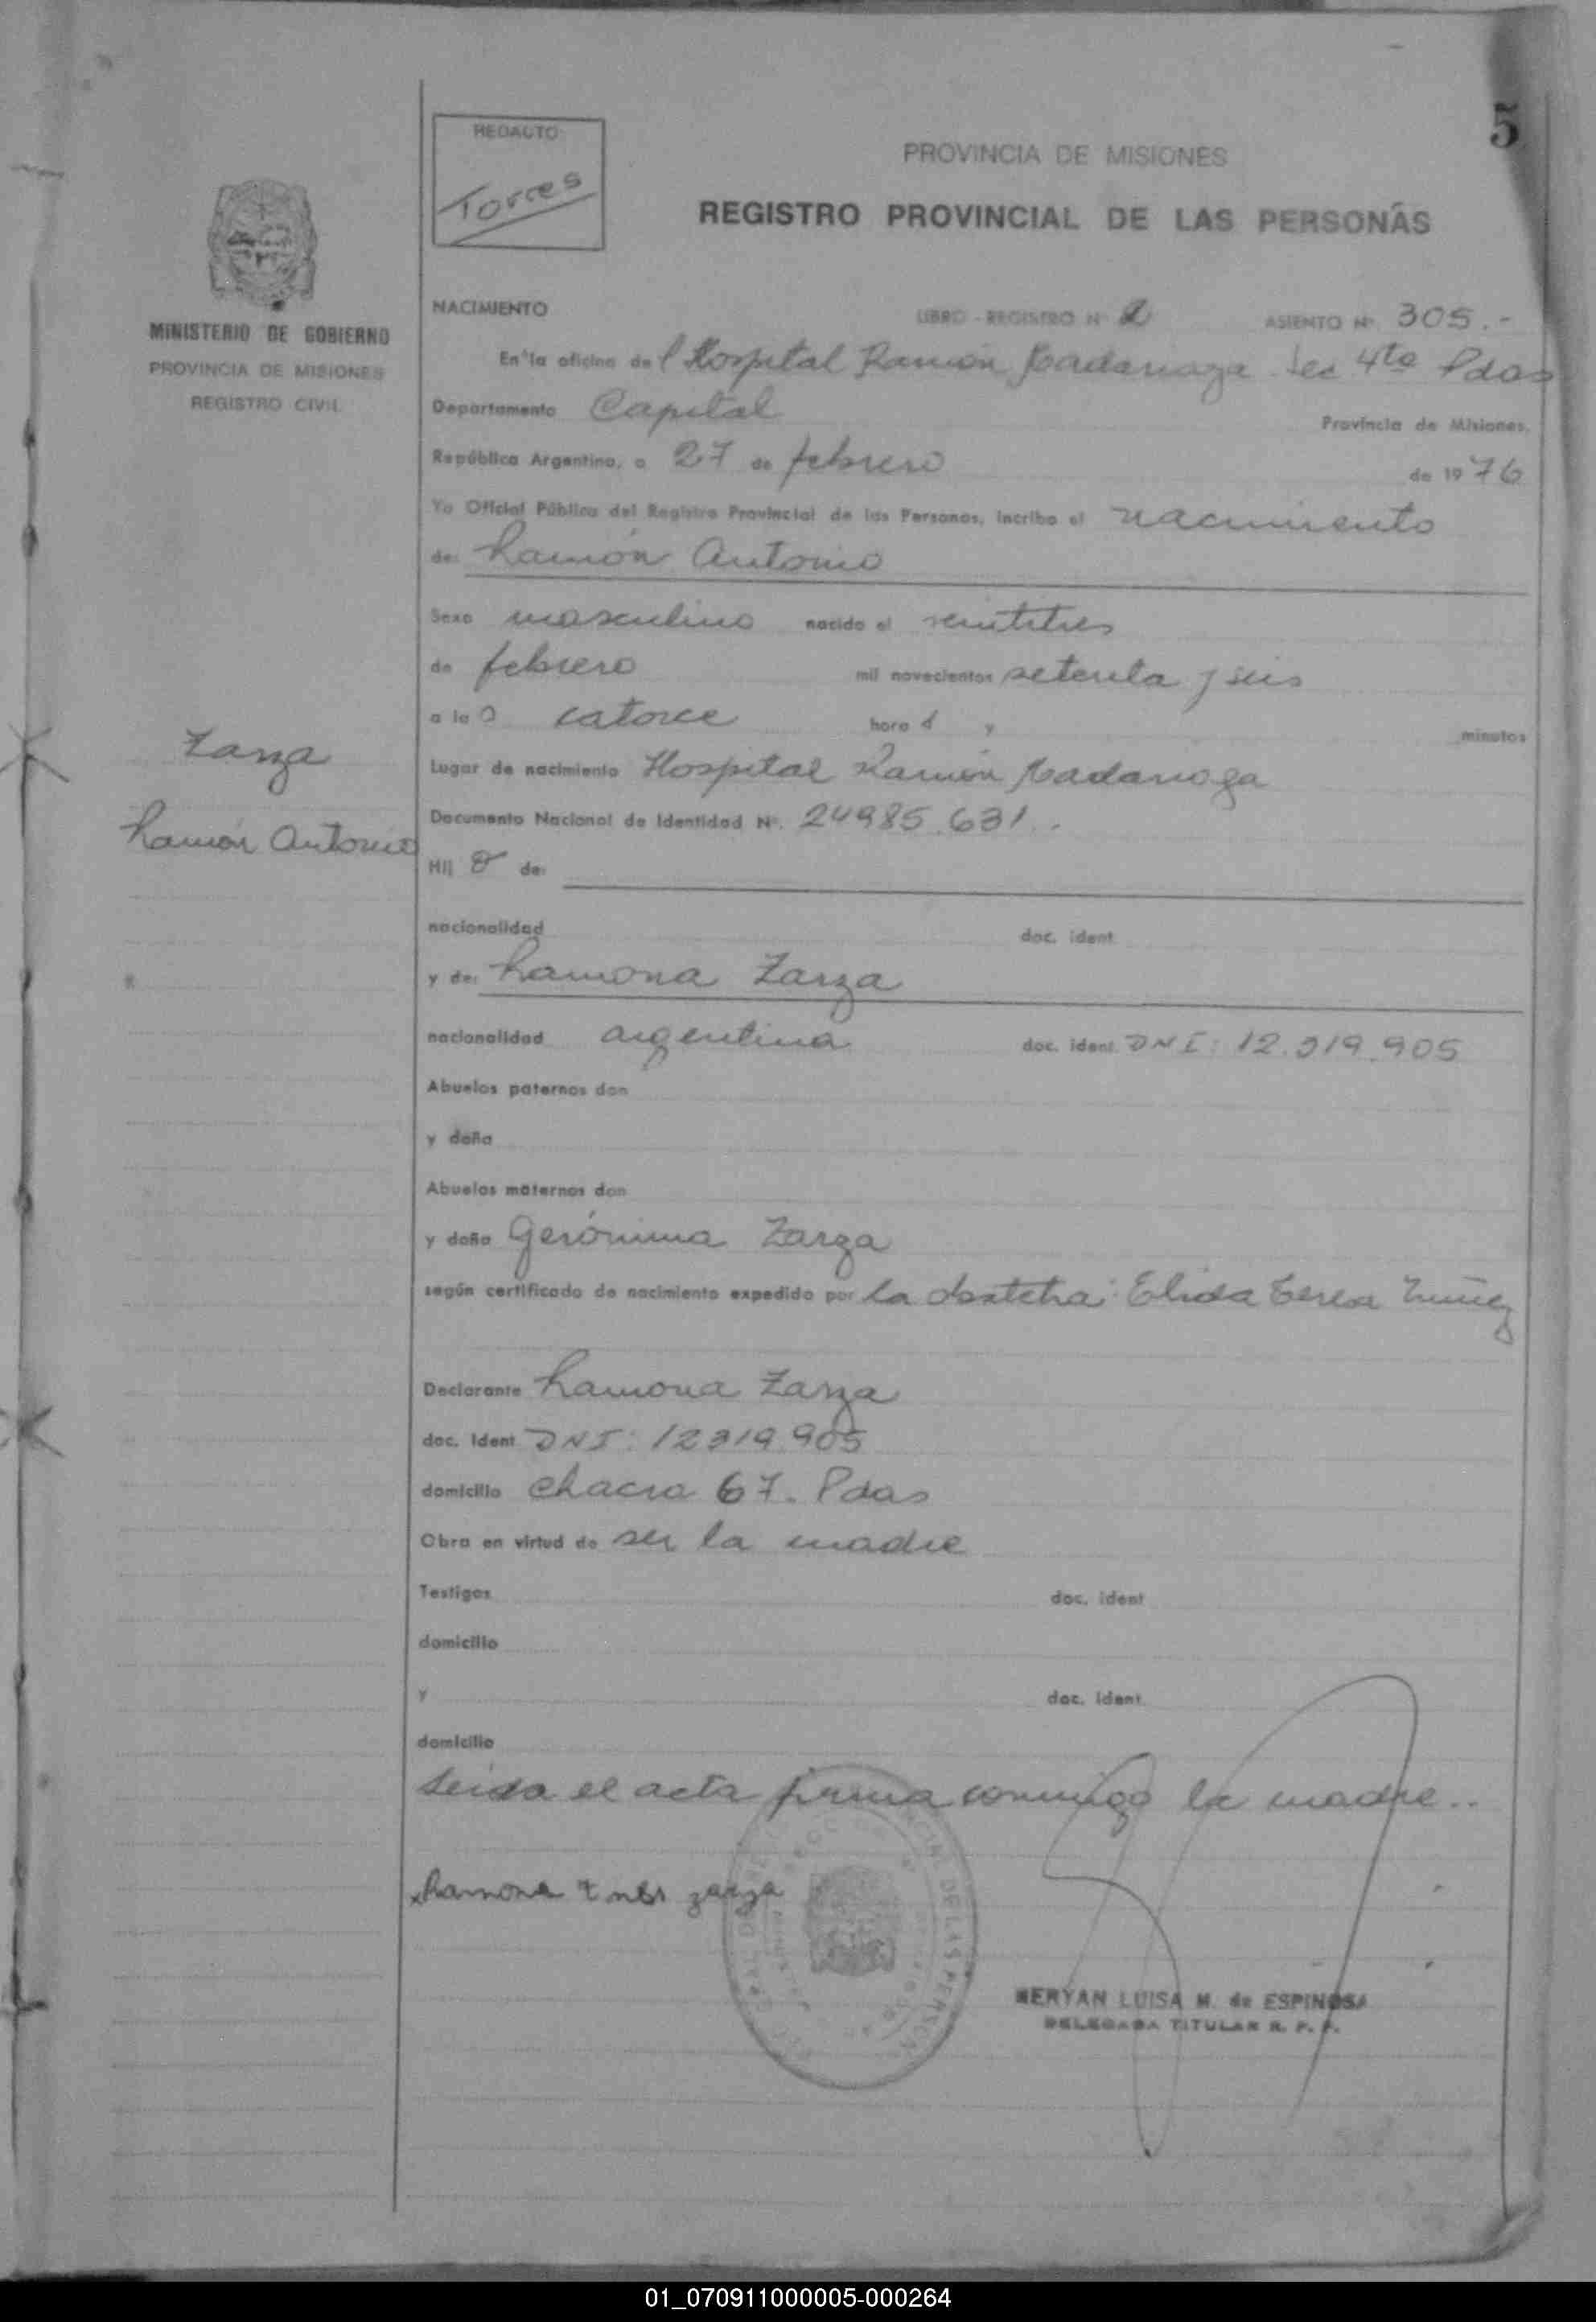 5
REDACTO
Torres
PROVINCIA DE MISIONES
REGISTRO PROVINCIAL DE LAS PERSONAS
MINISTERIO DE GOBIERNO
PROVINCIA DE MISIONES
REGISTRO CIVIL
NACIMIENTO LIBRO - REGISTRO Nº 2 ASIENTO Nº 305.-
En la oficina del Hospital Ramón Madariaga Sec 4ta Pdas
Departamento Capital Provincia de Misiones,
República Argentina, a 27 de febrero de 1976
Yo Oficial Público del Registro Provincial de las Personas, incribo el nacimiento
de: Ramón Antonio
Sexo masculino nacido el veintitres
de febrero mil novecientos setenta y seis
a las catorce horas y minutos
Zarza
Ramón Antonio
Lugar de nacimiento Hospital Ramón Madariaga
Documento Nacional de Identidad Nº. 24985.631.
Hijo de:
nacionalidad doc. ident.
y de: Ramona Zarza
nacionalidad argentina doc. ident. DNI: 12.319.905
Abuelos paternos don
y doña
Abuelos maternos don
y doña Gerónima Zarza
según certificado de nacimiento expedido por la obstetra: Elida Teresa
Declarante Ramona Zarza
doc. Ident DNI: 12319.905
domicilio chacra 67. Pdas
Obra en virtud de ser la madre
Testigos doc. ident
domicilio
y doc. ident.
domicilio
Leida el acta firma conmigo la madre..
Ramona Ines zarza
NERYAN LUISA M. de ESPINOSA
DELEGADA TITULAR R. P. P.
01_070911000005-000264